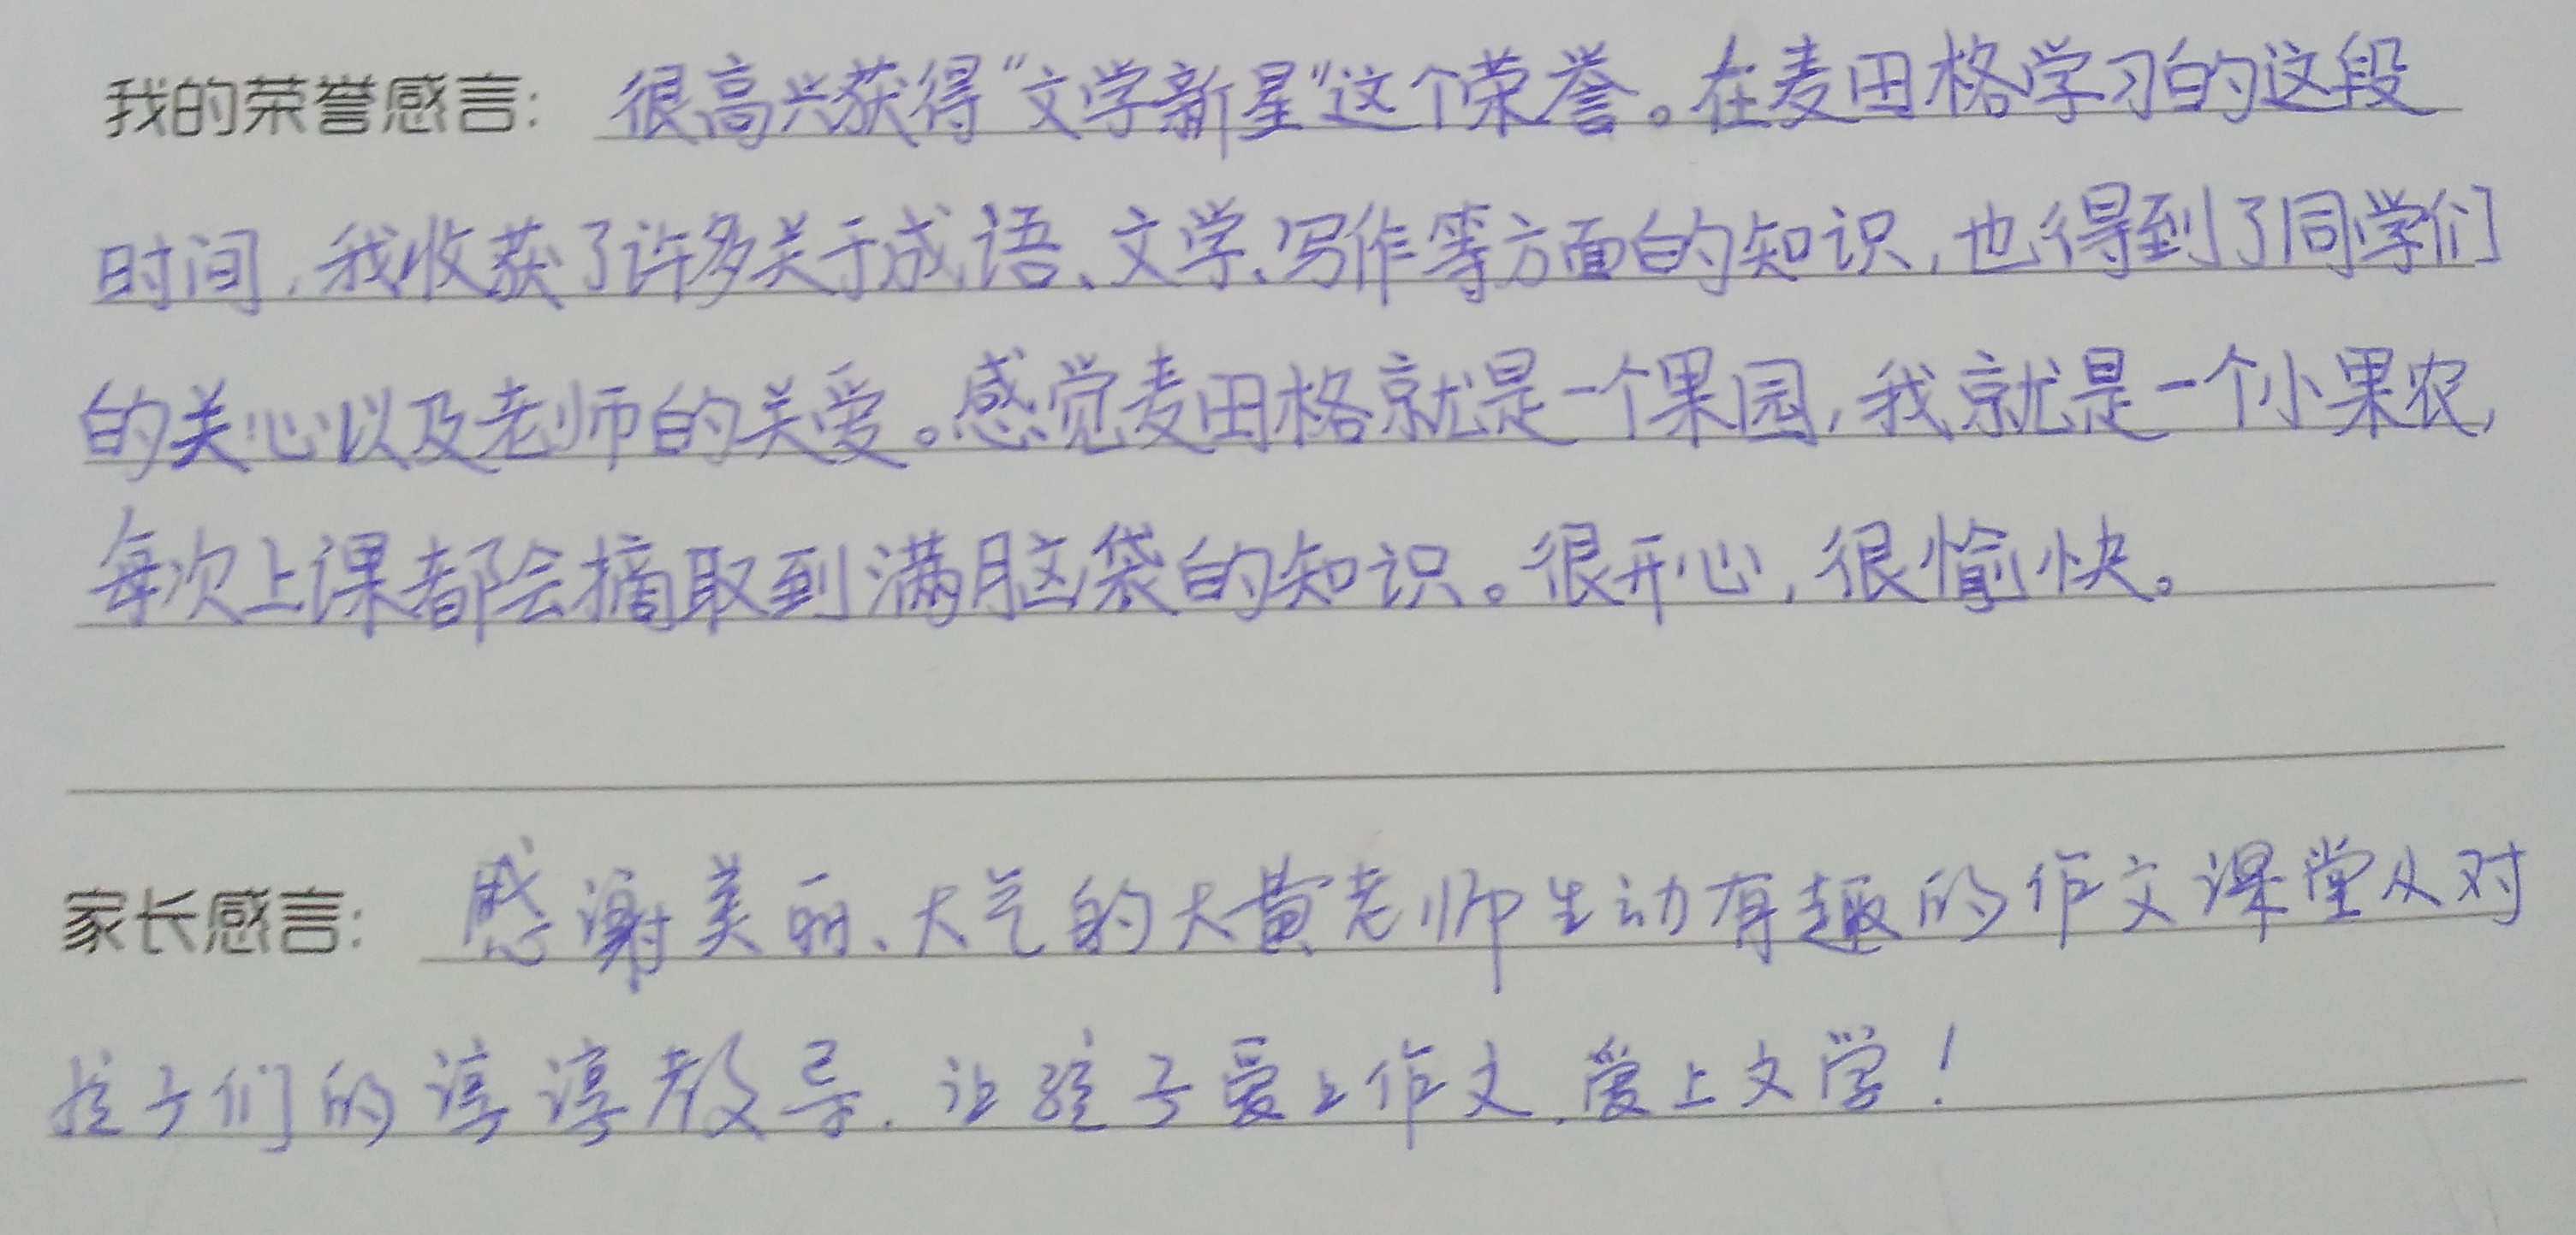 我的荣誉感言：很高兴获得“文学新星”这个荣誉。在麦田格学习的这段
时间，我收获了许多关于成语、文学、写作等方面的知识，也得到了同学们
的关心以及老师的关爱。感觉麦田格就是一个果园，我就是一个小果农，
每次上课都会摘取到满脑袋的知识。很开心，很愉快。
家长感言：感谢美丽、大气的大黄老师生动有趣的作文课堂及对
孩子们的谆谆教导，让孩子爱上作文，爱上文学！